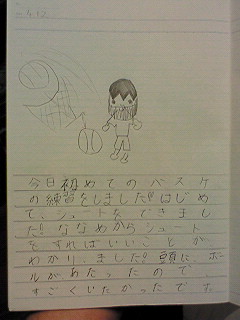 今日初めてのバスケ
の練習をしました!!はじめ
て、シュートをできまし
た!!ななめからシュート
をすればいいことが、
わかりました!!頭に、ボー
ルがあたったので、
すごくいたかったです